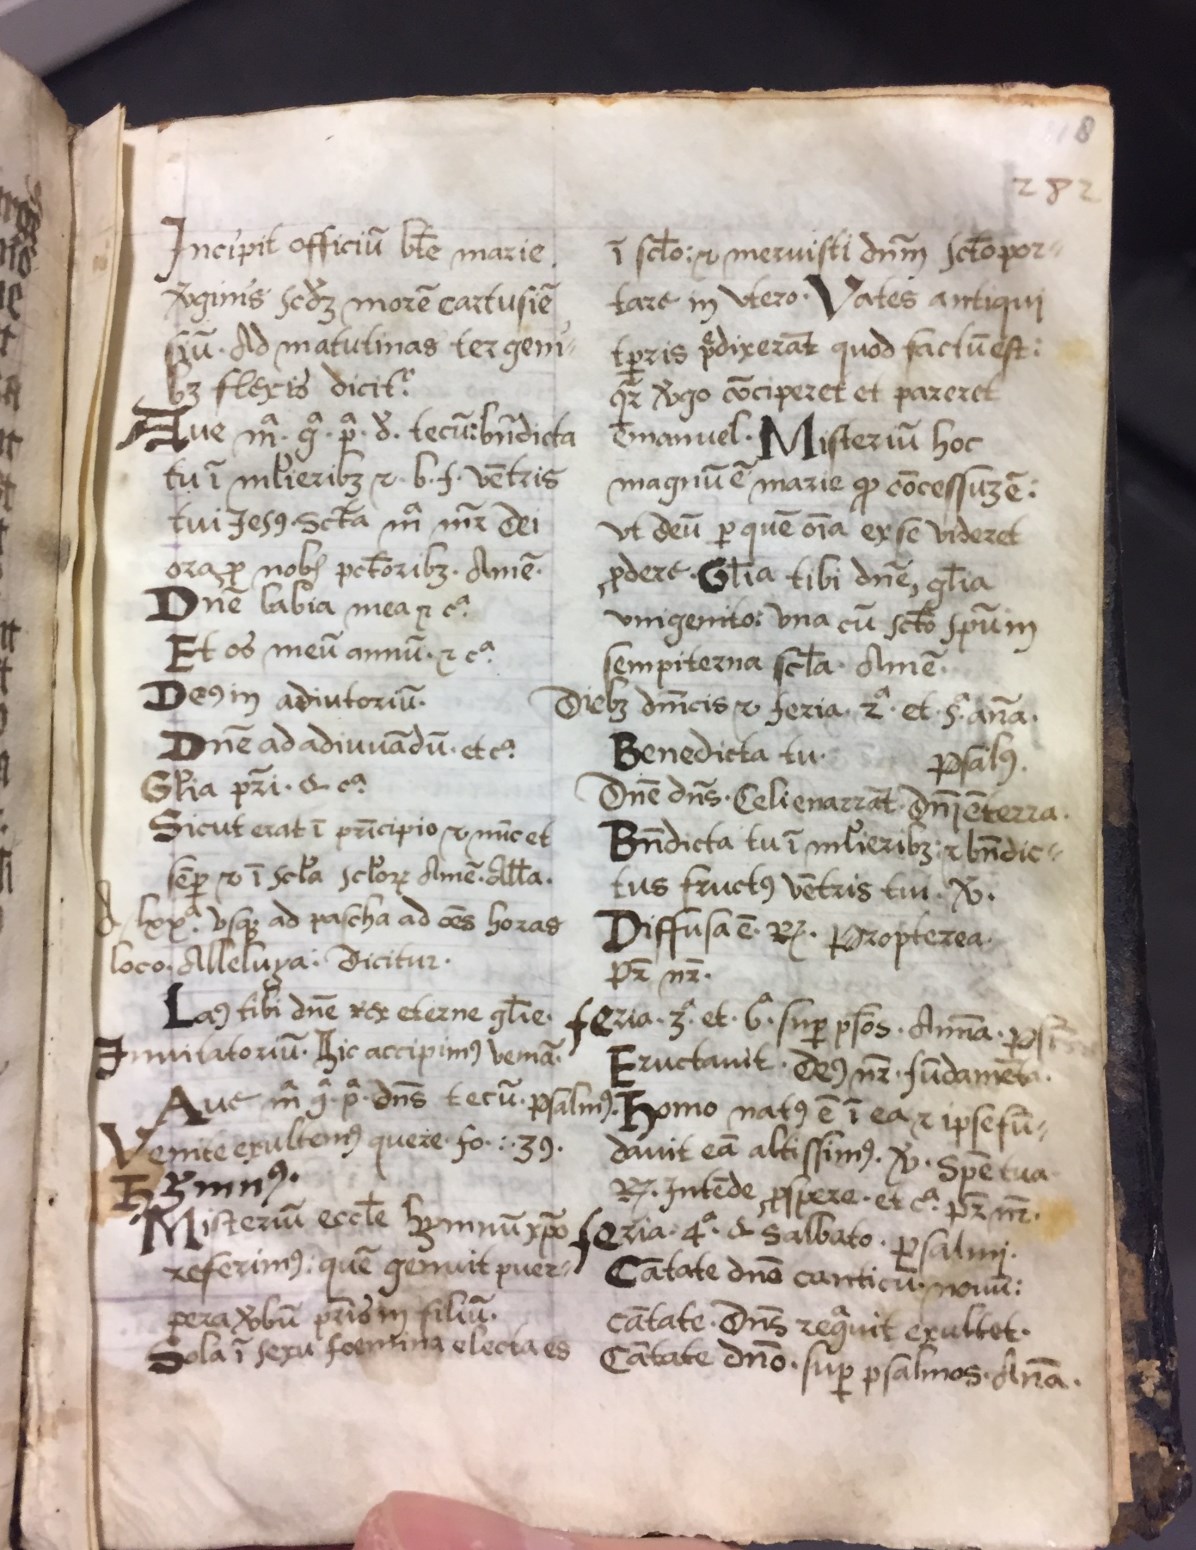 8
282
Incipit officiũ bt̃e marie
v̾ginis scd̾ʒ morẽ cartusiẽ
siũ. Ad matutinas ter geni-
bʒ flexis dicitᷣ
Aue mª. gª. pª. d̾. tecũ: bñdicta
tu ĩ ml̾ieribʒ ⁊. b. f. vẽtris
tui Jesꝰ. Sct̃a mª mr̃ dei
ora ꝓ nobis pctõribʒ. Amẽ.
Dñe labia mea ⁊ cª.
Et os meũ annũ. ⁊ cª
Deꝰ in adiutoriũ.
Dñe ad adiuuãdũ. et cª
Gl̾ia pr̃i. & cª
Sicut erat ĩ prĩcipio ⁊ nũc et
sẽꝑ ⁊ ĩ scl̾a scl̾oꝝ Amẽ. All̃a.
A lxxª. vsqꝫ ad pascha ad oẽs horas
loco. Alleluya. Dicitur.
Laꝰ tibi dñe rex eterne gl̃ie.
Inuitatoriũ. Hic accipimꝰ veniã.
Aue mª gª. pª. dñs tecũ. psalmꝰ.
Venite exultemꝰ quere. fo. :. 39.
Hymnꝰ.
Misteriũ eccl̃e hymnũ xp̃o
referimꝰ: quẽ genuit puer-
pera v̾bũ pr̃is in filiũ.
Sola ĩ sexu foemina electa es
ĩ scl̃o: ⁊ meruisti dñm sct̃o por-
tare in vtero. Vates antiqui
tꝑris p̃dixerãt quod factũ est:
qr̃ v̾go cõciperet et pareret
ẽmanuel. Misteriũ hoc
magnũ ẽ marie qƺ cõcessuʒ ẽ:
vt deũ ꝑ quẽ oĩa ex se videret
ꝓdere. Gl̃ia tibi dñe, gl̃ia
vnigenito: vna cũ sctõ spũ in
sempiterna scl̃a. Amẽ.
Diebʒ dñicis ⁊ feria. 2ª. et. 5ª. añа.
Benedicta tu. psalꝰ.
Dñe dñs. Celi enarrãt. Dñi ẽ terra.
Bñdicta tu ĩ ml̾ieribʒ: ⁊ bñdic-
tus fructꝰ vẽtris tui. ℣.
Diffusa ẽ. ℞. Propterea.
Pr̃ nr̃.
feria. 3ª. et. 6ª. suꝑ psõs. Anña.
Eructauit. Deꝰ nr̃. fũdamẽta.
Homo natꝰ ẽ ĩ ea ⁊ ipse fũ-
dauit eã altissimꝰ. ℣. Spẽ tua
℞. Intẽde ꝓspere. et cª. pr̃ nr̃.
feria. 4ª. & Sabbato. psalmi.
Cãtate dño canticũ. nouũ:
cãtate. Dñs regªuit exultet.
Cãtate dño. suꝑ psalmos. Añа.